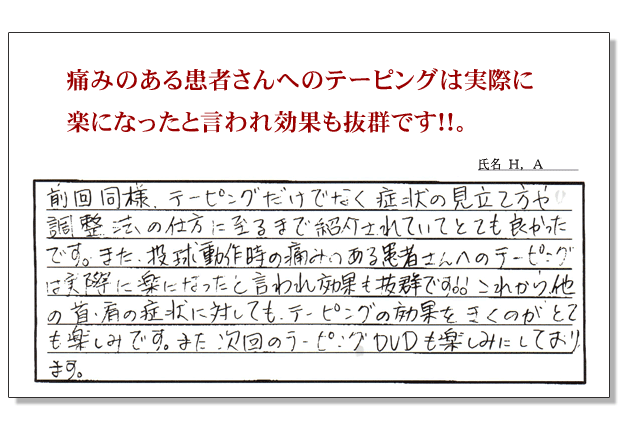 痛みのある患者さんへのテーピングは実際に
楽になったと言われ効果も抜群です!!。
氏名 H, A
前回同様、テーピングだけでなく症状の見立て方や
調整法、の仕方に至るまで紹介されていてとても良かった
です。また、投球動作時の痛みのある患者さんへのテーピング
は実際に楽になったと言われ効果も抜群です!!。これから、他
の首・肩の症状に対しても、テーピングの効果をきくのがとて
も楽しみです。また次回のテーピングDVDも楽しみにしており
ます。